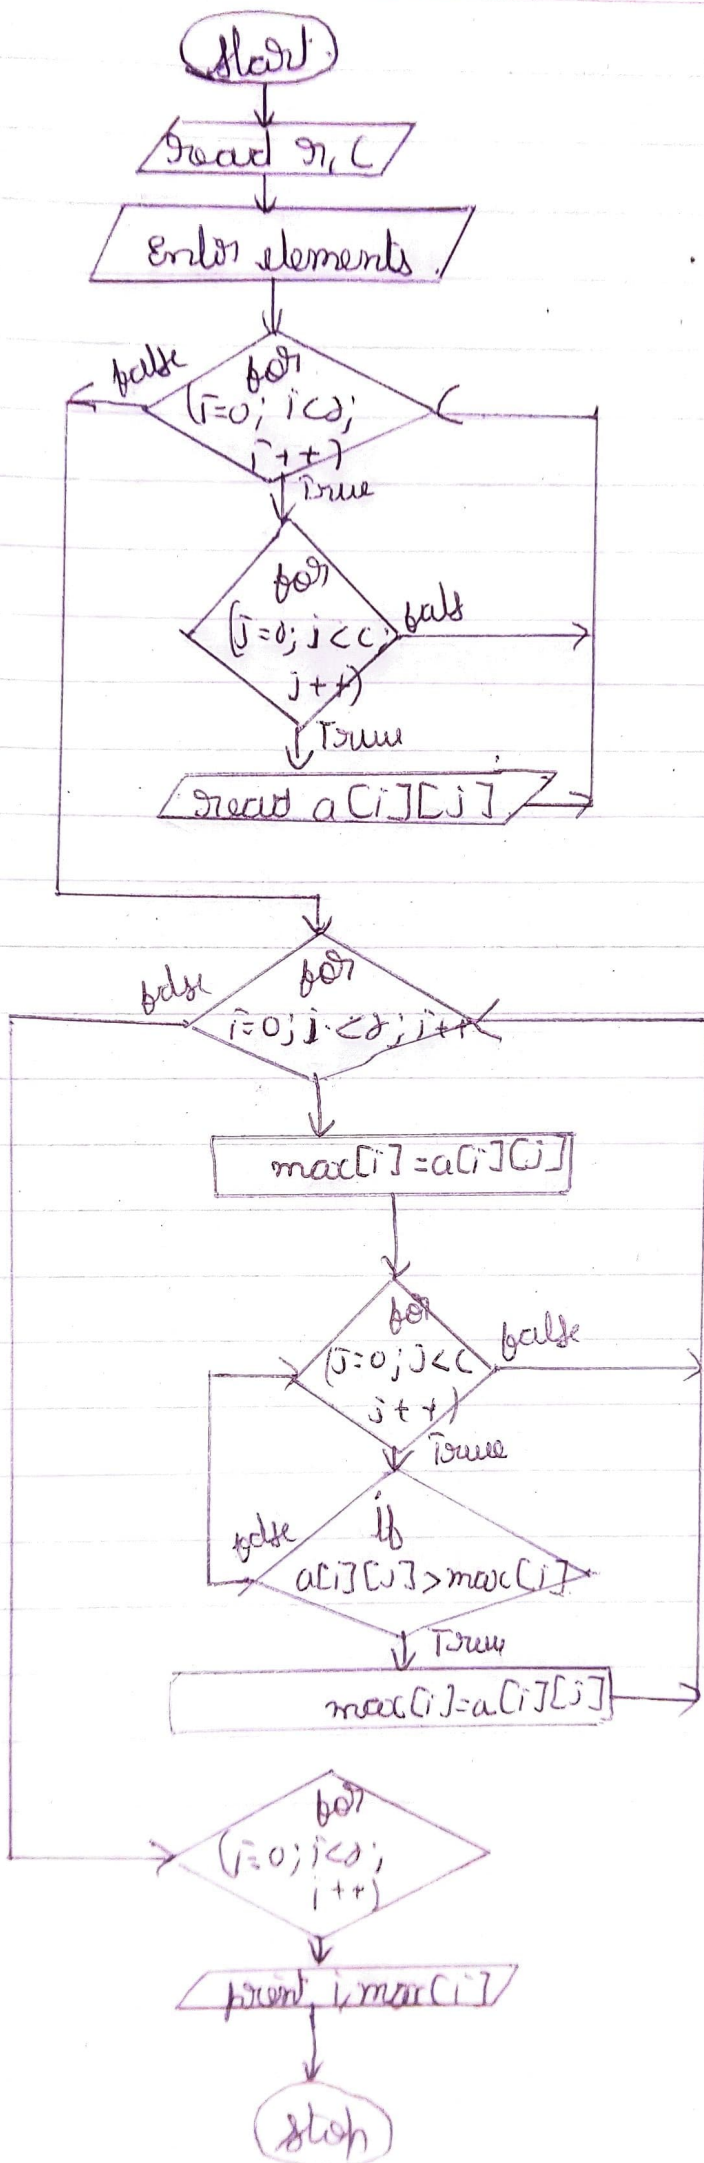 Start
read r, c
Enter elements.
false
for
(i=0; i<r;
i++)
True
for
(j=0; j<c;
j++)
fals
True
read a[i][j]
false
for
i=0; i<r; i++
max[i]=a[i][j]
for
(j=0; j<c
j++)
false
True
if
a[i][j]>max[i]
false
True
max[i]=a[i][j]
for
(i=0; i<r;
i++)
print i, max[i]
stop